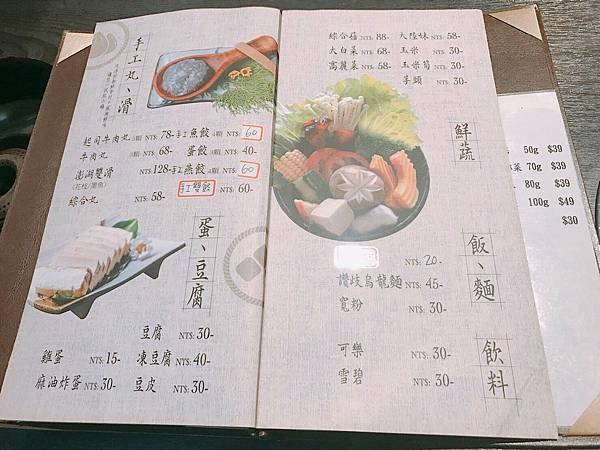 手工丸、滑
起司牛肉丸 NT$: 78- 手工魚餃 4顆 NT$: 60
牛肉丸 NT$: 68- 蛋餃 3顆 NT$: 40-
澎湖雙滑 NT$: 128- 手工燕餃 4顆 NT$: 60
(花枝/墨魚) 手工雙餃 NT$: 60-
綜合丸 NT$: 58-
蛋、豆腐
豆腐 NT$: 30-
雞蛋 NT$: 15- 凍豆腐 NT$: 40-
麻油炸蛋 NT$: 30- 豆皮 NT$: 30-
綜合菇 NT$: 88- 大陸妹 NT$: 58-
大白菜 NT$: 68- 玉米 NT$: 30-
高麗菜 NT$: 58- 玉米筍 NT$: 30-
芋頭 NT$: 30-
鮮蔬
飯、麵
NT$: 20-
讚岐烏龍麵 NT$: 45-
寬粉 NT$: 30-
飲料
可樂 NT$: 30-
雪碧 NT$: 30-
50g $39
菜 70g $39
80g $39
100g $49
$30